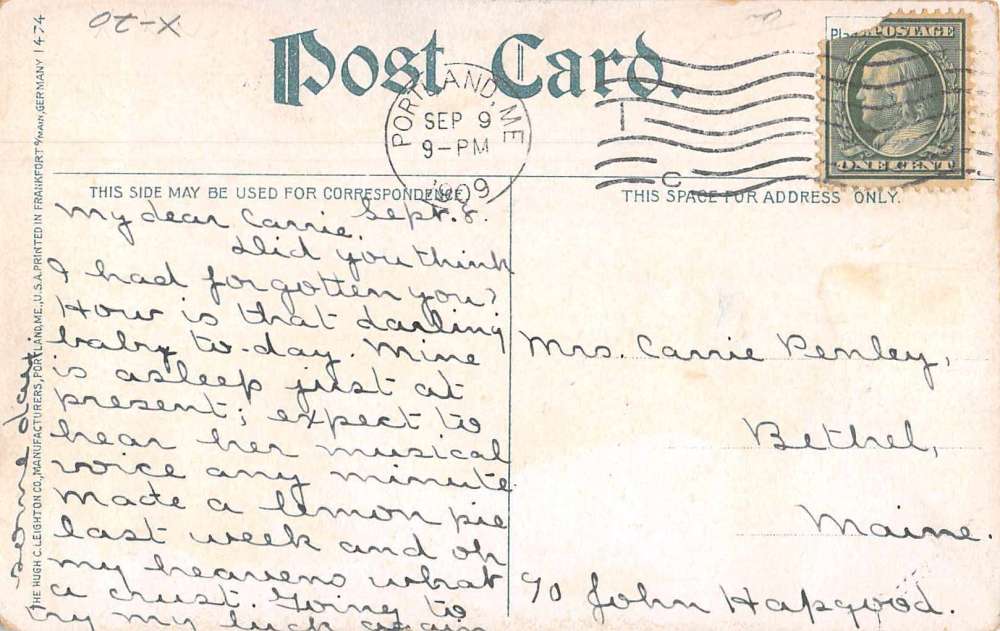 OZ-X
Post Card.
PORTLAND, ME
SEP 9
9-PM
1909
POSTAGE
ONE CENT
THIS SIDE MAY BE USED FOR CORRESPONDENCE
THIS SPACE FOR ADDRESS ONLY.
THE HUGH C. LEIGHTON CO., MANUFACTURERS, PORTLAND, ME., U.S.A. PRINTED IN FRANKFORT o/MAIN, GERMANY 1474
Sept. 8.
My dear Carrie.
Did you think
I had forgotten you?
How is that darling
baby to-day. Mine
is asleep just at
present; expect to
hear her musical
voice any minute.
Made a lemon pie
last week and oh
my heavens what
a crust. Going to
try my luck again
some day.
Mrs. Carrie Penley,
Bethel,
Maine.
c/o John Hapgood.